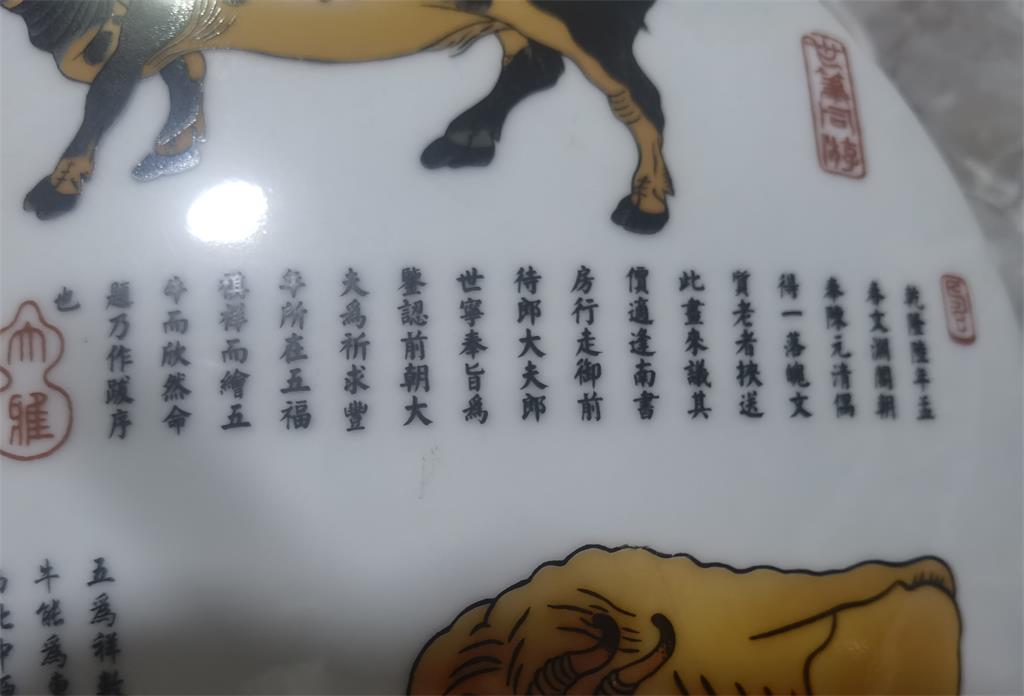 乾隆陸年孟
春文淵閣朝
奉陳元清偶
得一落魄文
質老者挾送
此畫來議其
價適逢南書
房行走御前
待郎大夫郎
世寧奉旨爲
鑒認前朝大
夫爲祈求豐
年所在五福
祺祥而繪五
牛而欣然命
題乃作跋序
也
大雅
五爲祥數
牛能爲